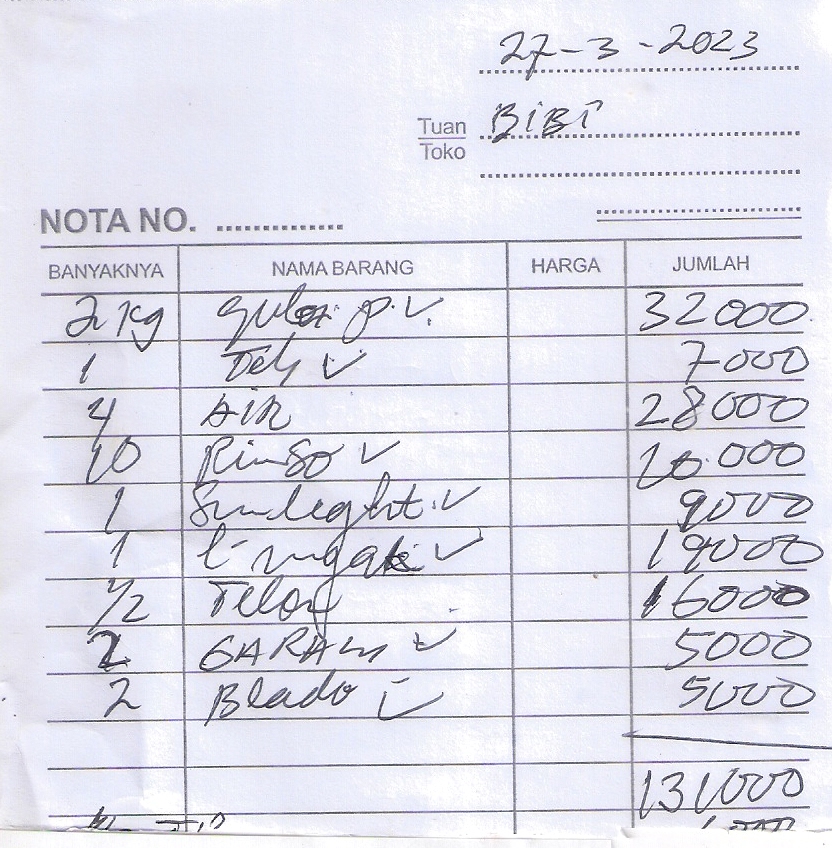 27-3-2023
Tuan BIBI
Toko
NOTA NO. ...............
BANYAKNYA NAMA BARANG HARGA JUMLAH
2 kg gula p. 32000
1 Teh 7000
4 AIR 28000
10 Rinso 10.000
1 Sunleght. 9000
1 19000
1/2 Telor 16000
2 GARAM 5000
2 Blado 5000
131000